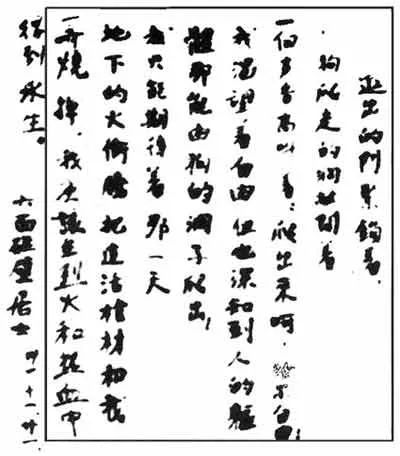 進出的門緊鎖着.
狗爬走的洞敞開着
一個声音高叫着：爬出来呵，給尔自由!
我渴望着自由 但也深知到人的軀
體那能由狗的洞子爬出!
我只能期待着 那一天
地下的火衝騰 把這活棺材和我
一齊燒掉 我應該在烈火和熱血中
得到永生。
六面碰壁居士 卅一·十一·廿一